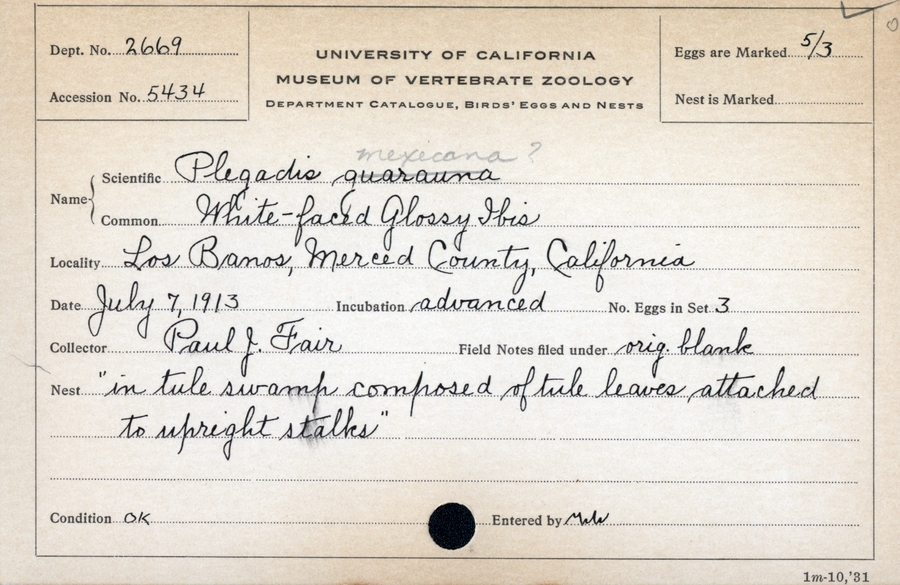 Dept. No. 2669
Accession No. 5434
UNIVERSITY OF CALIFORNIA
MUSEUM OF VERTEBRATE ZOOLOGY
DEPARTMENT CATALOGUE, BIRDS' EGGS AND NESTS
Eggs are Marked 5/3
Nest is Marked
mexicana ?
Name Scientific Plegadis guarauna
Common White-faced Glossy Ibis
Locality Los Banos, Merced County, California
Date July 7, 1913 Incubation advanced No. Eggs in Set 3
Collector Paul J. Fair Field Notes filed under orig. blank
Nest "in tule swamp composed of tule leaves attached
to upright stalks"
Condition OK Entered by
1m-10,'31